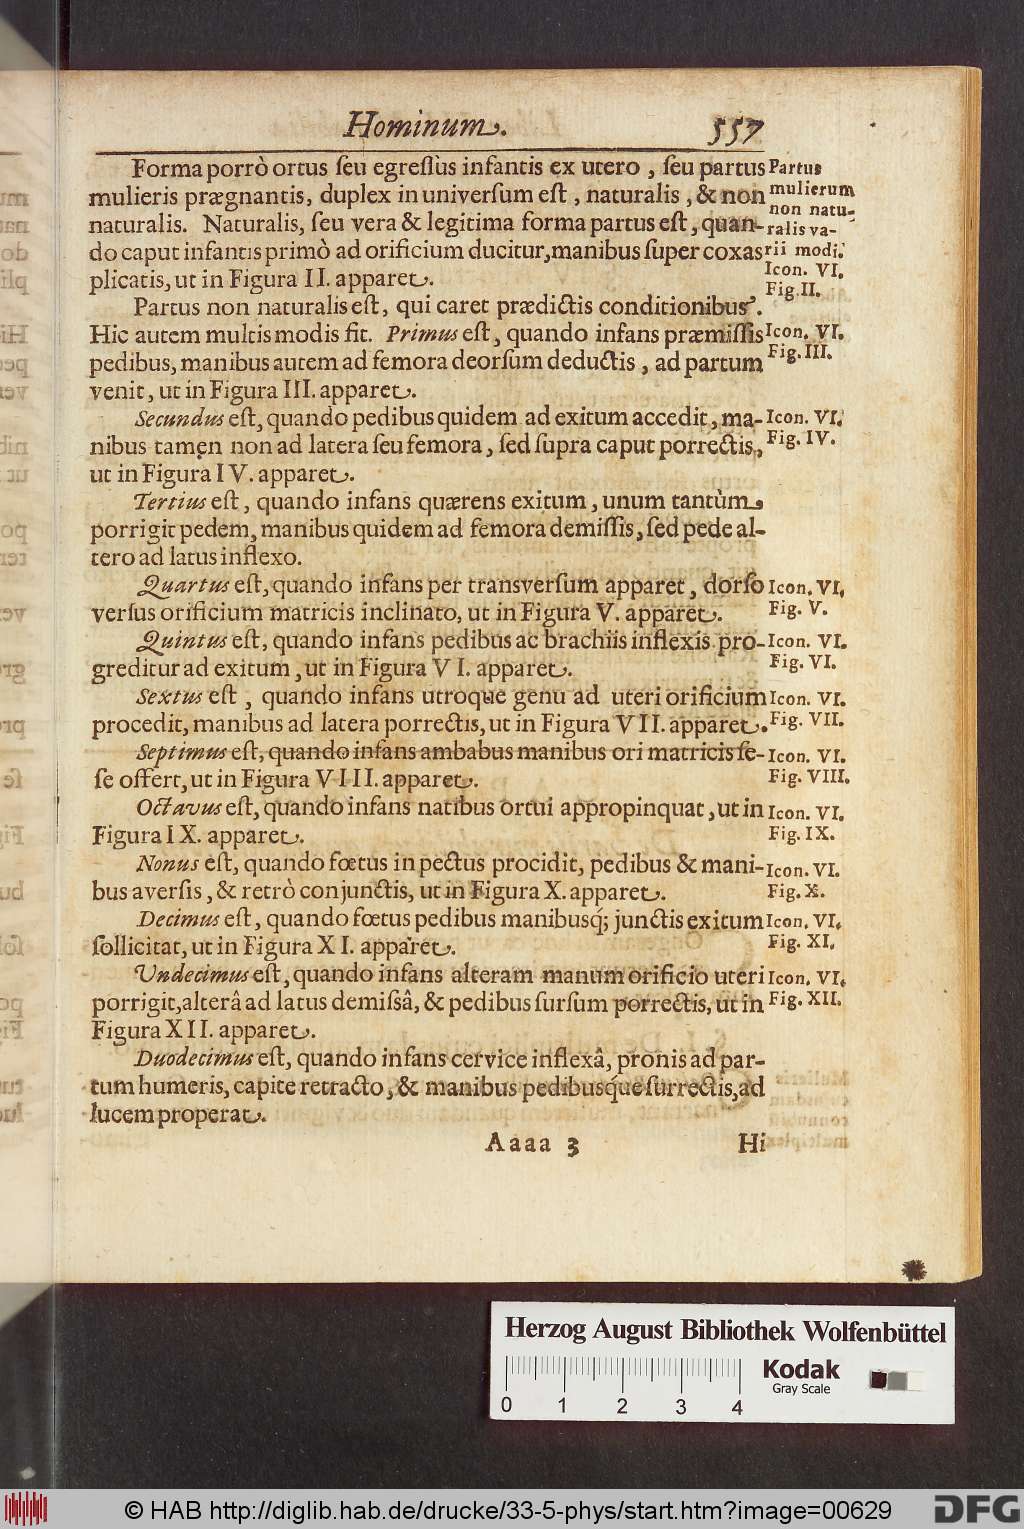 Hominum. 557
Forma porrò ortus ſeu egreſſùs infantis ex utero, ſeu partus
mulieris prægnantis, duplex in univerſum eſt, naturalis, & non
naturalis. Naturalis, ſeu vera & legitima forma partus eſt, quan-
do caput infantis primò ad orificium ducitur, manibus ſuper coxas
plicatis, ut in Figura II. apparet.
Partus mulierum
non natu-
ralis va-
rii modi.
Icon. VI.
Fig. II.
Partus non naturalis eſt, qui caret prædictis conditionibus.
Hic autem multis modis fit. Primus eſt, quando infans præmiſſis
pedibus, manibus autem ad femora deorſum deductis, ad partum
venit, ut in Figura III. apparet.
Icon. VI.
Fig. III.
Secundus eſt, quando pedibus quidem ad exitum accedit, ma-
nibus tamen non ad latera ſeu femora, ſed ſupra caput porrectis,
ut in Figura IV. apparet.
Icon. VI.
Fig. IV.
Tertius eſt, quando infans quærens exitum, unum tantùm
porrigit pedem, manibus quidem ad femora demiſſis, ſed pede al-
tero ad latus inflexo.
Quartus eſt, quando infans per transverſum apparet, dorſo
verſus orificium matricis inclinato, ut in Figura V. apparet.
Icon. VI.
Fig. V.
Quintus eſt, quando infans pedibus ac brachiis inflexis pro-
greditur ad exitum, ut in Figura VI. apparet.
Icon. VI.
Fig. VI.
Sextus eſt, quando infans utroque genu ad uteri orificium
procedit, manibus ad latera porrectis, ut in Figura VII. apparet.
Icon. VI.
Fig. VII.
Septimus eſt, quando infans ambabus manibus ori matricis ſe-
ſe offert, ut in Figura VIII. apparet.
Icon. VI.
Fig. VIII.
Octavus eſt, quando infans natibus ortui appropinquat, ut in
Figura IX. apparet.
Icon. VI.
Fig. IX.
Nonus eſt, quando fœtus in pectus procidit, pedibus & mani-
bus averſis, & retrò conjunctis, ut in Figura X. apparet.
Icon. VI.
Fig. X.
Decimus eſt, quando fœtus pedibus manibusq́; junctis exitum
ſollicitat, ut in Figura XI. apparet.
Icon. VI.
Fig. XI.
Undecimus eſt, quando infans alteram manum orificio uteri
porrigit, alterâ ad latus demiſsâ, & pedibus ſurſum porrectis, ut in
Figura XII. apparet.
Icon. VI.
Fig. XII.
Duodecimus eſt, quando infans cervice inflexâ, pronis ad par-
tum humeris, capite retracto, & manibus pedibusq́ue ſurrectis, ad
lucem properat.
Aaaa 3 Hi
Herzog August Bibliothek Wolfenbüttel
0 1 2 3 4
Kodak
Gray Scale
© HAB http://diglib.hab.de/drucke/33-5-phys/start.htm?image=00629
DFG